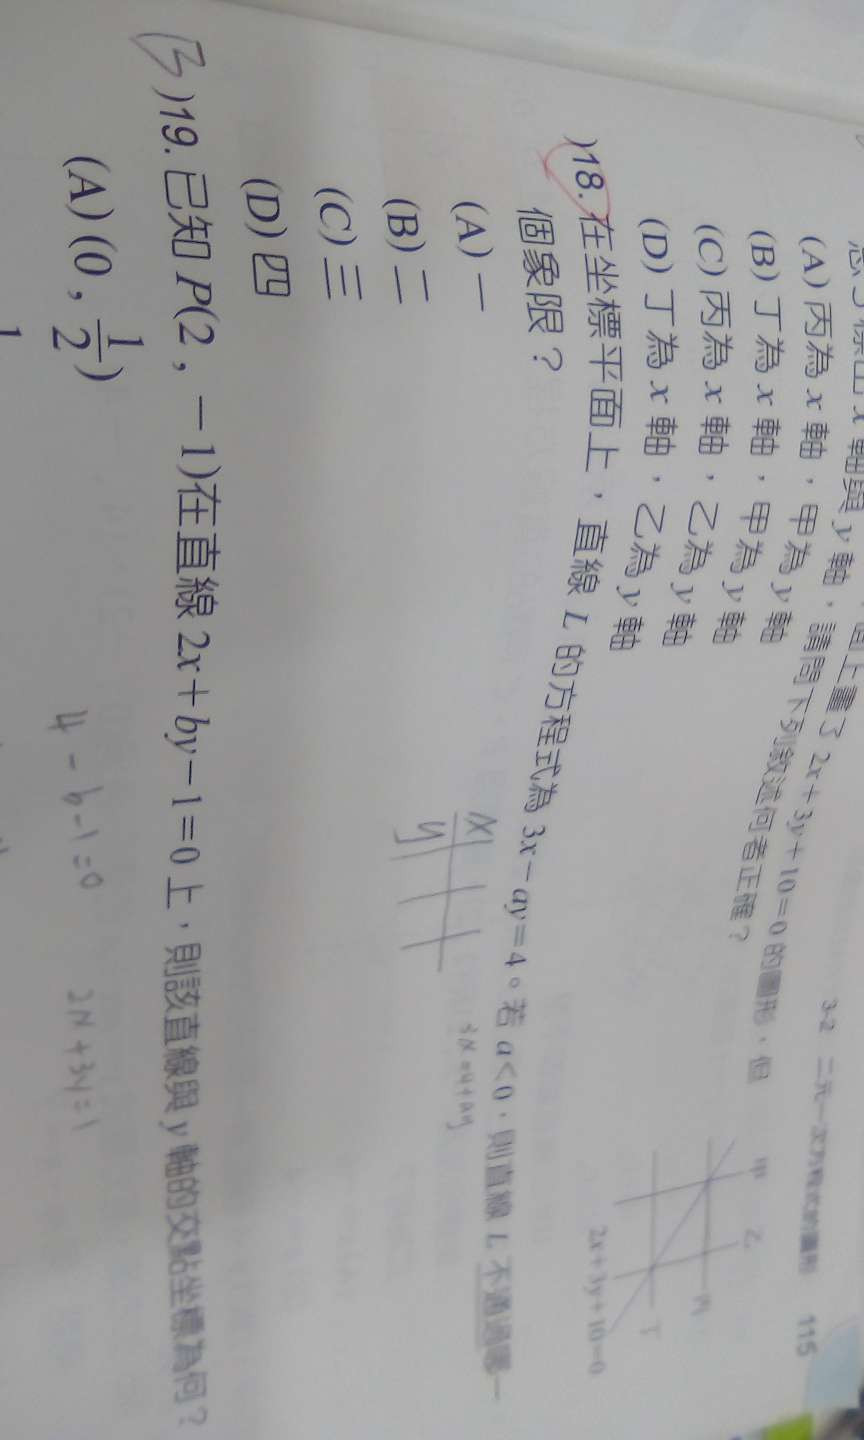 3-2 二元一次方程式的圖形 115
2x+3y+10=0 的圖形，但
x 軸與 y 軸，請問下列敘述何者正確？
(A) 丙為 x 軸，甲為 y 軸
(B) 丁為 x 軸，甲為 y 軸
(C) 丙為 x 軸，乙為 y 軸
(D) 丁為 x 軸，乙為 y 軸
甲 乙
丙
丁
2x+3y+10=0
)18. 在坐標平面上，直線 L 的方程式為 3x－ay=4。若 a<0，則直線 L 不通過哪一
個象限？
(A) 一
(B) 二
(C) 三
(D) 四
x
y
3x=4+ay
B )19. 已知 P(2，－1)在直線 2x+by－1=0 上，則該直線與 y 軸的交點坐標為何？
(A) (0，1/2)
4-b-1=0
2x+3y=1